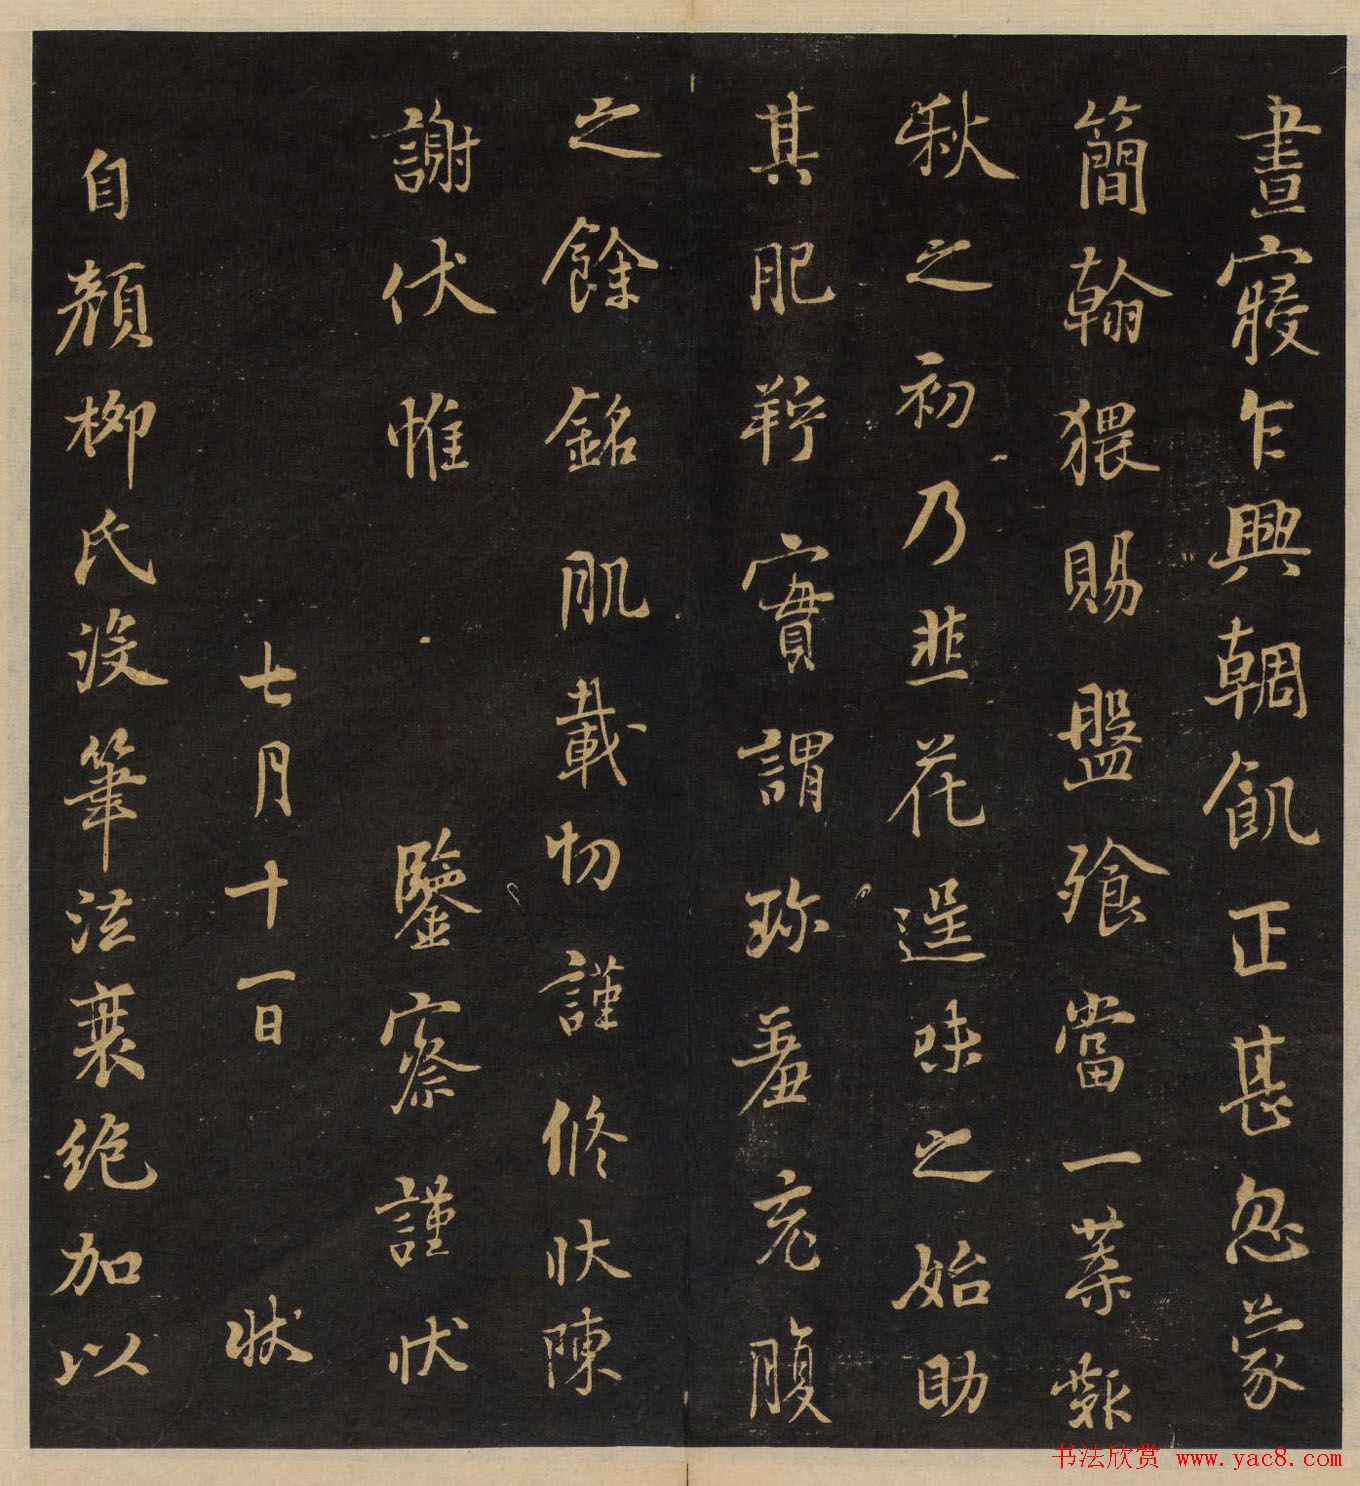 晝寢乍興輖飢正甚忽蒙
簡翰猥賜盤飧當一葉報
秋之初乃韭花逞味之始助
其肥羜實謂珍羞充腹
之餘銘肌載切謹修狀陳
謝伏惟 鑒察謹狀
七月十一日 狀
自顏柳氏沒筆法衰絕加以
书法欣赏 www.yac8.com